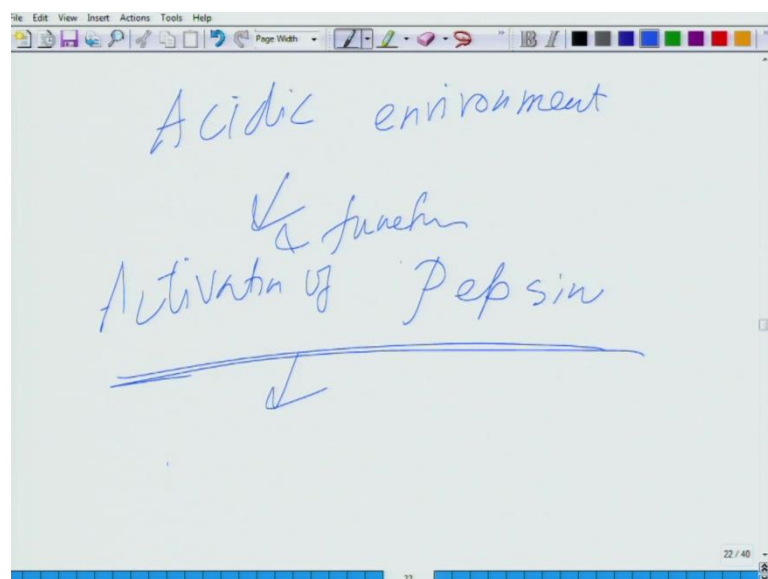 File Edit View Insert Actions Tools Help
Page Width
B I
Acidic environment
& function
Activation of Pepsin
22 / 40
22